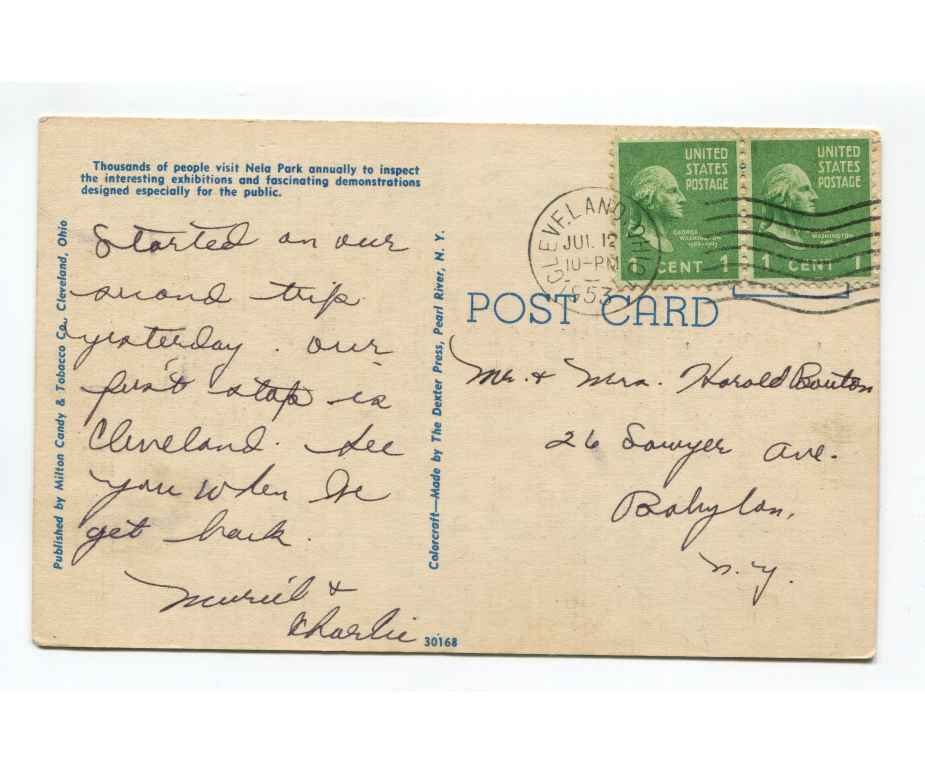 Thousands of people visit Nela Park annually to inspect
the interesting exhibitions and fascinating demonstrations
designed especially for the public.
Started on our
second trip
yesterday. our
first stop is
Cleveland. See
you when we
get back.
Muriel &
Charlie
Published by Milton Candy & Tobacco Co., Cleveland, Ohio
Colorcraft—Made by The Dexter Press, Pearl River, N. Y.
30168
UNITED
STATES
POSTAGE
GEORGE
WASHINGTON
1 CENT 1
UNITED
STATES
POSTAGE
WASHINGTON
1 CENT 1
CLEVELAND, OHIO
JUL 12
10-PM
1953
POST CARD
Mr. & Mrs. Harold Bouton
26 Sawyer Ave.
Babylon,
N.Y.